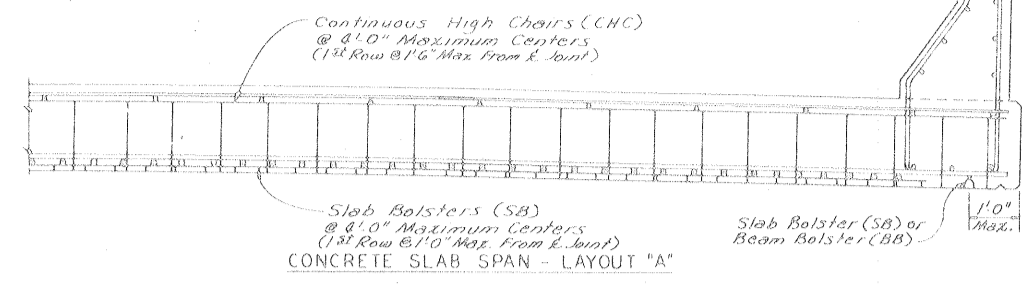 Continuous High Chairs (CHC)
@ 4'-0" Maximum Centers
(1st Row @ 1'6" Max. From ℄ Joint)
Slab Bolsters (SB)
@ 4'-0" Maximum Centers
(1st Row @ 1'0" Max. From ℄ Joint)
Slab Bolster (SB) or
Beam Bolster (BB)
1'0"
Max.
CONCRETE SLAB SPAN - LAYOUT "A"